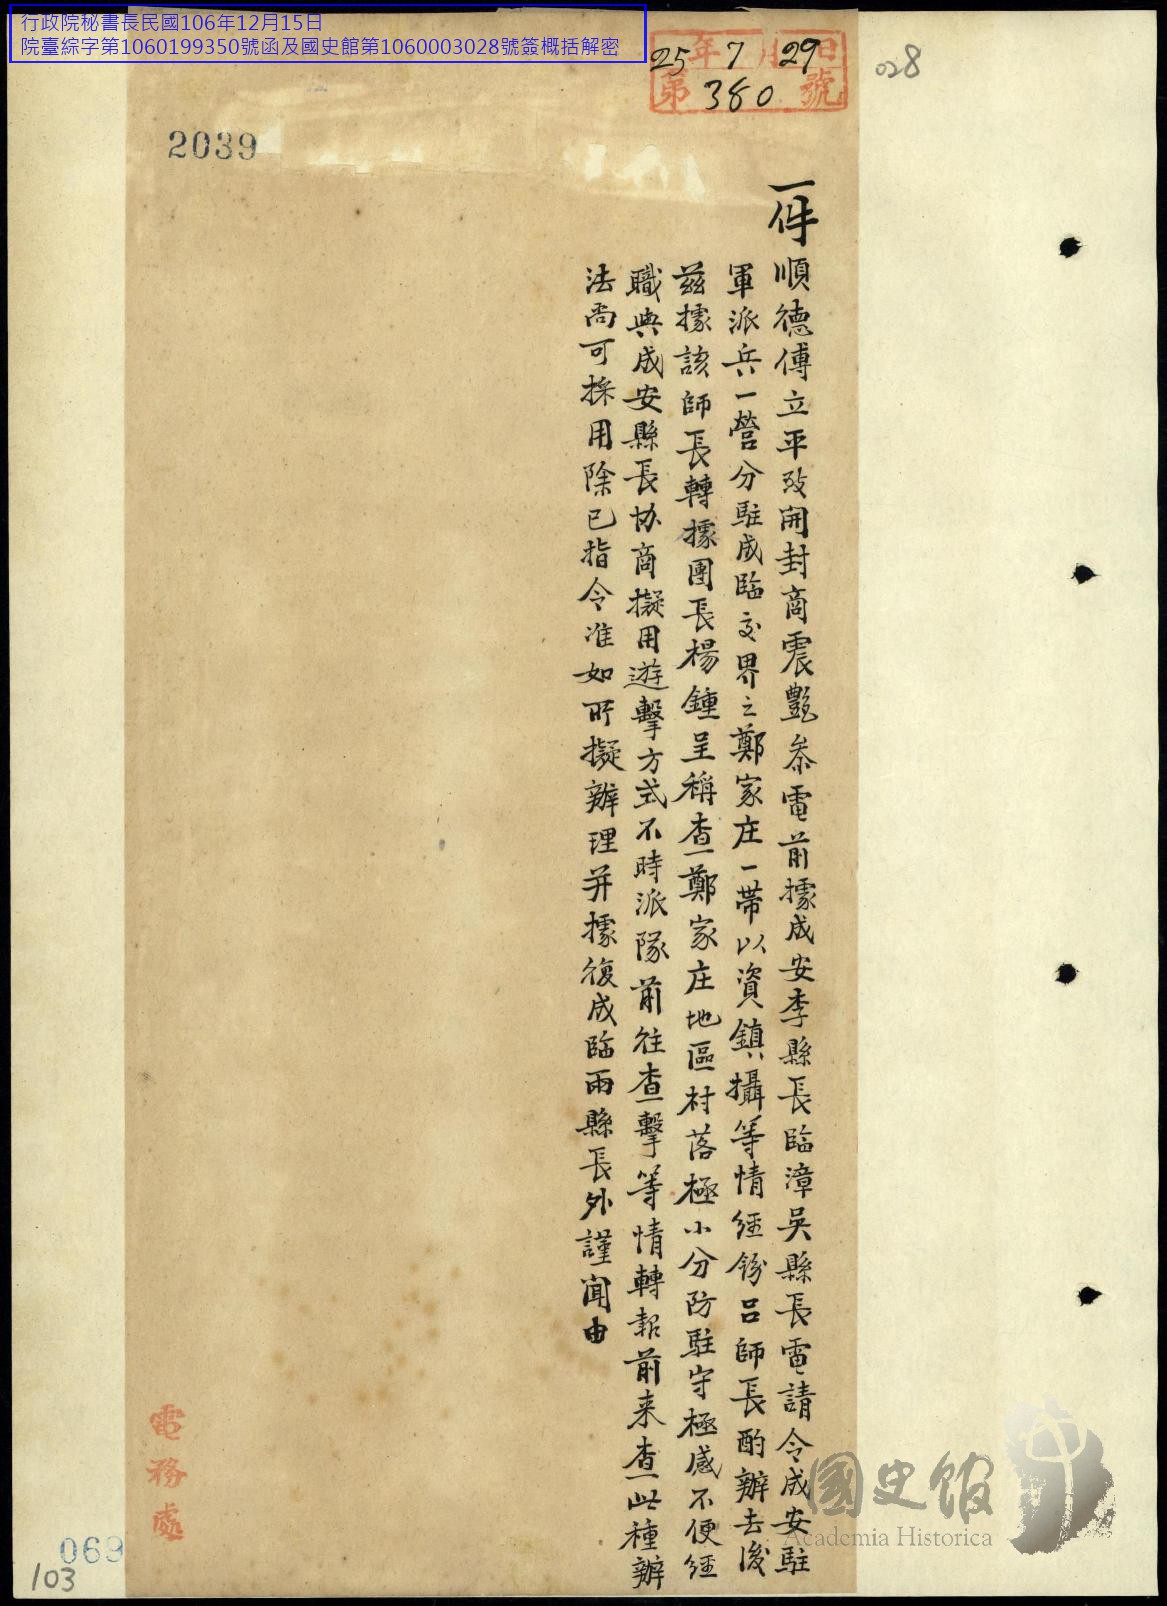 行政院秘書長民國106年12月15日
院臺綜字第1060199350號函及國史館第1060003028號簽概括解密
25年7月29日
第380號
028
2039
一件
順德傅立平致開封商震艷叅電前據成安李縣長臨漳吳縣長電請令成安駐
軍派兵一營分駐成臨交界之鄭家庄一帶以資鎮攝等情經飭呂師長酌辦去後
茲據該師長轉據團長楊鍾呈稱查鄭家庄地區村落極小分防駐守極感不便經
職與成安縣長协商擬用遊擊方式不時派隊前往查擊等情轉報前来查此種辦
法尚可採用除已指令准如所擬辦理并據復成臨兩縣長外謹聞由
電務處
069
103
國史館
Academia Historica